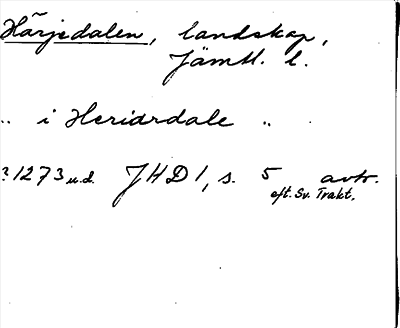 Härjedalen, landskap,
Jämtl. l.
.. i Heriardale ..
?1273 u.d. JHD 1, s. 5 avtr.
eft. Sv. Trakt.